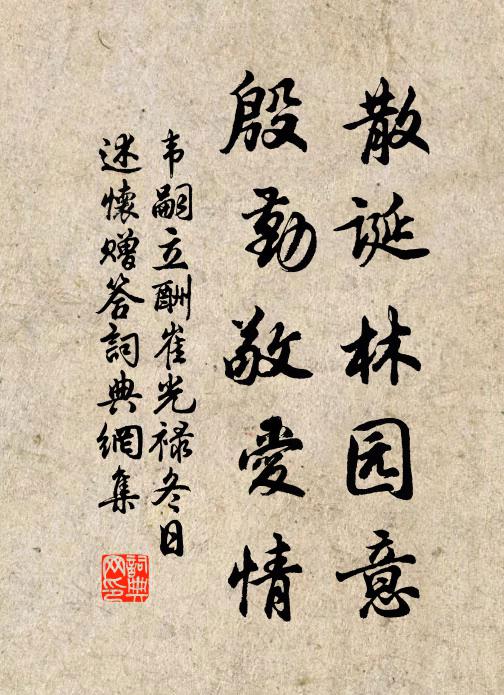 散诞林园意
殷勤敬爱情
韦嗣立酬崔光禄冬日
述怀赠答詞典網集
詞典
网印